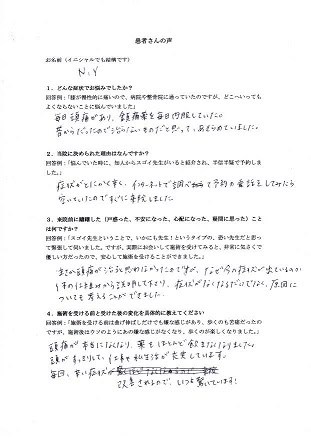 患者さんの声
お名前（イニシャルでも結構です）
N.Y
1．どんな症状でお悩みでしたか？
回答例：「腰が慢性的に痛いので、病院や整骨院に通っていたのですが、どこへいってもよくならないことに悩んでいました」
毎日頭痛があり、鎮痛薬を毎日内服していた。
昔からだったので治らないものだと思って、あきらめていました。
2．当院に決められた理由はなんですか？
回答例：「悩んでいた時に、知人からスゴイ先生がいると紹介され、半信半疑で予約しました。」
症状がとにかく辛く、インターネットで調べ
予約の電話をしてみたら
空いていたのですぐに来院しました
3．来院前に躊躇した（戸惑った、不安になった、心配になった、疑問に思った）ことは何ですか？
回答例：「スゴイ先生ということで、いかにも先生！というタイプの、恐い先生だと思って緊張して伺いました。ですが、実際にお会いして施術を受けてみると、非常に気さくで優しい方だったので、安心して施術を受けることができました」
まさか頭痛が治ると思わなかったのですが、なぜ今の症状が出ているのか
体の仕組みから説明して下さり、症状がなくなるだけでなく、原因に
ついても考えることができました。
4．施術を受ける前と受けた後の変化を具体的に教えてください
回答例：「施術を受ける前は曲げ伸ばしだけでも嫌な感じがあり、歩くのも苦痛だったのですが、施術後はウソのようにあの嫌な感じがなくなり、歩くのが楽しくなりました。」
頭痛が本当になくなり、薬もほとんど飲まなくなりました。
頭がすっきりして、仕事も私生活が充実しています。
毎回、辛い症状が
改善されるので、いつも驚いています！